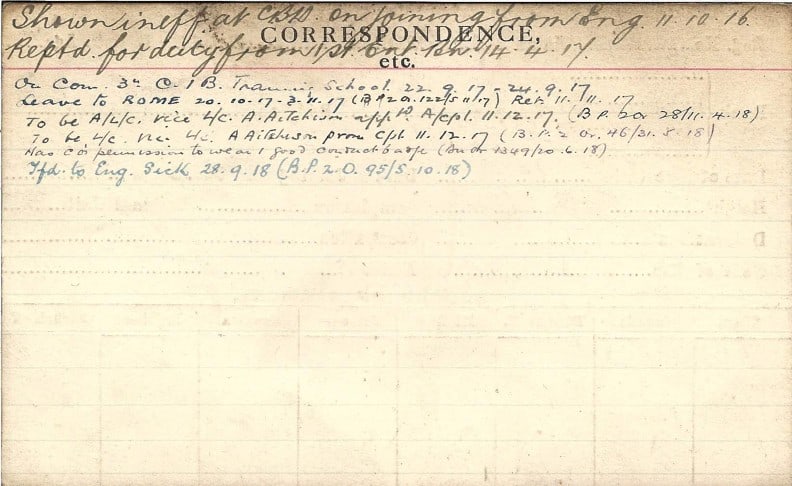 Shown ineff at CBD. on joining from Eng. 11.10.16.
CORRESPONDENCE,
Reptd. for duty from 1st. Ent. Bn. 14.4.17.
etc.
On Com. 3rd C.I.B. Training School. 22.9.17 - 24.9.17
Leave to ROME 20.10.17-3.11.17 (B.P.2.O. 122/5.11.17) Ret. 11.11.17
To be A/L/C. vice L/c. A. Aitchison appd. A/Cpl. 11.12.17. (B.P.2 Or 28/11.4.18)
To be L/c. vice L/c. A Aitchison prom Cpl 11.12.17 (B.P.2 Or. 46/31.8.18)
Has CO's permission to wear 1 good conduct badge (Bn Or 1349/20.6.18)
Tfd. to Eng. Sick 28.9.18 (B.P.2.O. 95/5.10.18)